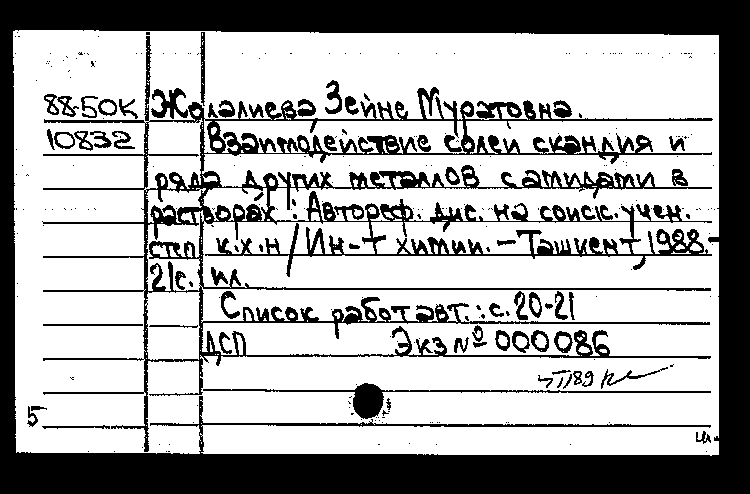 88-50К Жолалиева, Зейне Муратовна.
10832 Взаимодействие солей скандия и
ряда других металлов с амидами в
растворах : Автореф. дис. на соиск. учен.
степ. к.х.н / Ин-т химии. - Ташкент, 1988. -
21с. : ил.
Список работ авт. : с. 20-21
ДСП Экз № 000086
5